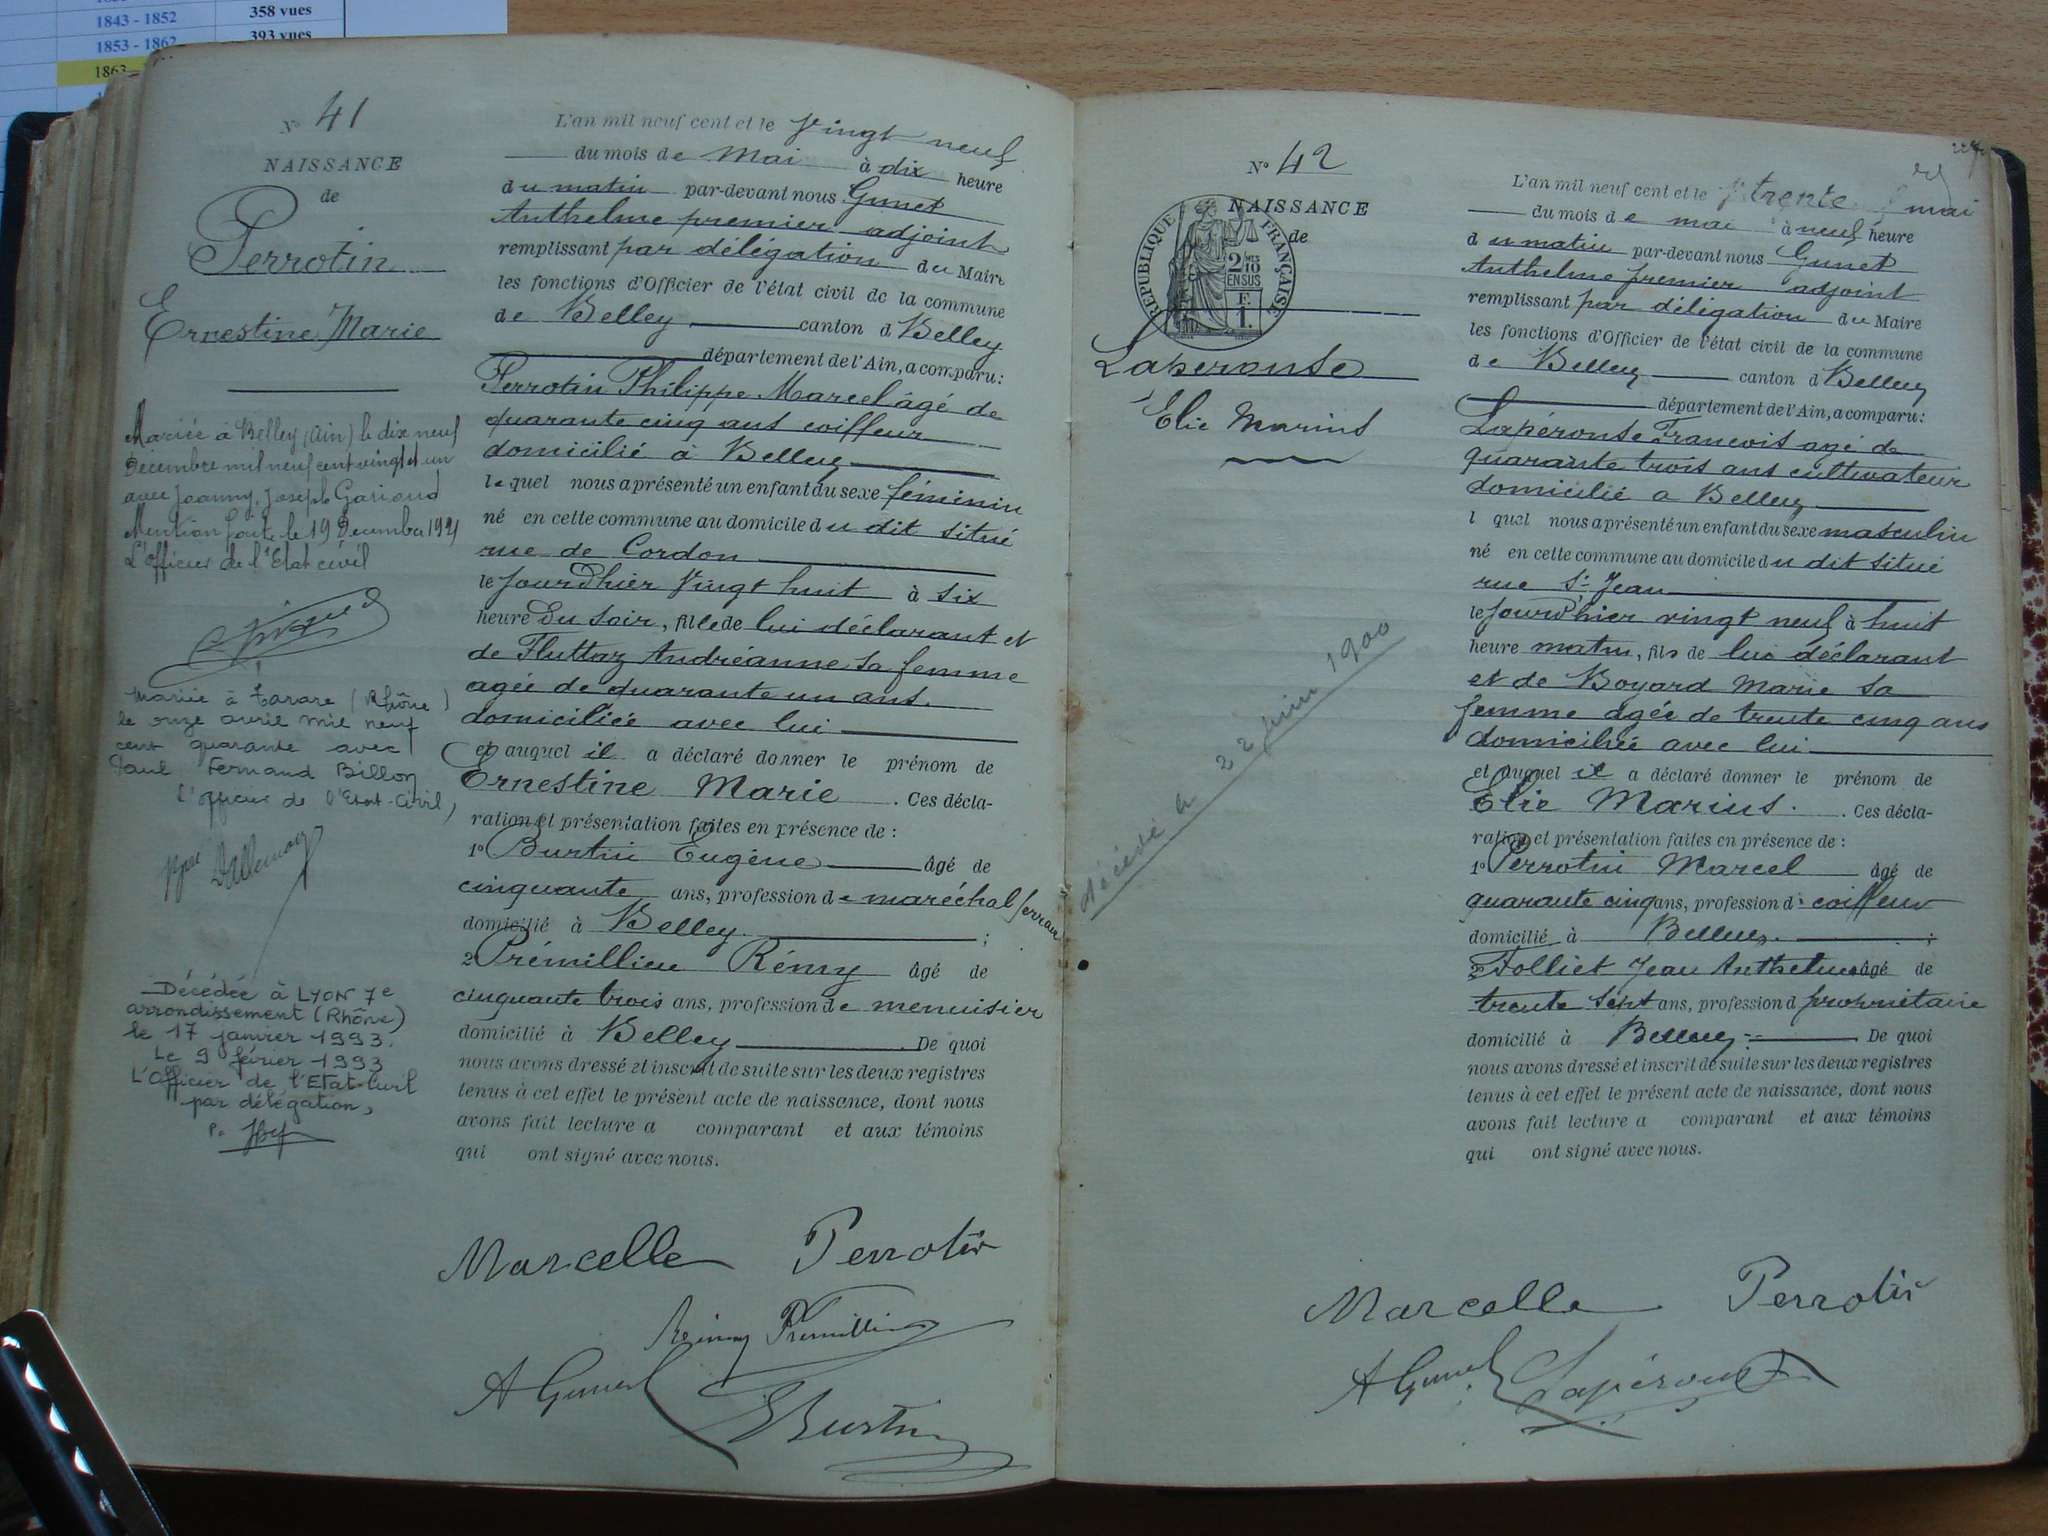 1843 - 1852 358 vues
1853 - 1862 393 vues
1863
N° 41
NAISSANCE
de
Perrotin
Ernestine Marie
Mariée à Belley (Ain) le dix neuf
Décembre mil neuf cent vingt et un
avec Joanny, Joseph Gariand
Mention faite le 19 Decembre 1921
L'officier de l'Etat civil
Mariée à Tarare (Rhône)
le onze avril mil neuf
cent quarante avec
Paul Fernand Billon
l'officier de l'Etat-Civil,
Décédée à LYON 7e
arrondissement (Rhône)
le 17 janvier 1993.
Le 9 février 1993
L'Officier de l'Etat-Civil
par délégation,
L'an mil neuf cent et le vingt neuf
du mois de Mai à dix heure
du matin par-devant nous Gunet
Anthelme premier adjoint
remplissant par délégation du Maire
les fonctions d'Officier de l'état civil de la commune
de Belley canton d Belley
département de l'Ain, a comparu:
Perrotin Philippe Marcel âgé de
quarante cinq ans coiffeur
domicilié à Belley
lequel nous a présenté un enfant du sexe féminin
né en cette commune au domicile du dit situé
rue de Cordon
le jourd'hier vingt huit à six
heure Du soir, fille de lui déclarant et
de Fluttaz Andréanne sa femme
agée de quarante un ans.
domiciliée avec lui
et auquel il a déclaré donner le prénom de
Ernestine Marie. Ces décla-
ration et présentation faites en présence de :
1° Burtin Eugène âgé de
cinquante ans, profession de maréchal ferran
domicilié à Belley. ;
2° Prémillieu Rémy âgé de
cinquante trois ans, profession de menuisier
domicilié à Belley. De quoi
nous avons dressé et inscrit de suite sur les deux registres
tenus à cet effet le présent acte de naissance, dont nous
avons fait lecture a comparant et aux témoins
qui ont signé avec nous.
Marcelle Perrotin
Rémy Prémillieu
A Gunet
E Burtin
N° 42
NAISSANCE
de
REPUBLIQUE FRANÇAISE
2 MES
10
EN SUS
F.
1.
Laperouse
Elie Marius
décédé le 22 juin 1900
L'an mil neuf cent et le trente mai
du mois de mai à neuf heure
du matin par-devant nous Gunet
Anthelme premier adjoint
remplissant par délégation du Maire
les fonctions d'Officier de l'état civil de la commune
de Belley canton d Belley
département de l'Ain, a comparu:
Lapérouse Francois agé de
quarante trois ans cultivateur
domicilié a Belley
l quel nous a présenté un enfant du sexe masculin
né en cette commune au domicile du dit situé
rue St Jean
le jourd'hier vingt neuf à huit
heure matin, fils de lui déclarant
et de Boyard Marie sa
femme agée de trente cinq ans
domiciliée avec lui
et auquel il a déclaré donner le prénom de
Elie Marius. Ces décla-
ration et présentation faites en présence de :
1° Perrotin Marcel âgé de
quarante cinq ans, profession d coiffeur
domicilié à Belley. ;
2° Folliet Jean Anthelme âgé de
trente sept ans, profession d propriétaire
domicilié à Belley. De quoi
nous avons dressé et inscrit de suite sur les deux registres
tenus à cet effet le présent acte de naissance, dont nous
avons fait lecture a comparant et aux témoins
qui ont signé avec nous.
Marcelle Perrotin
A Gunet Lapérouse